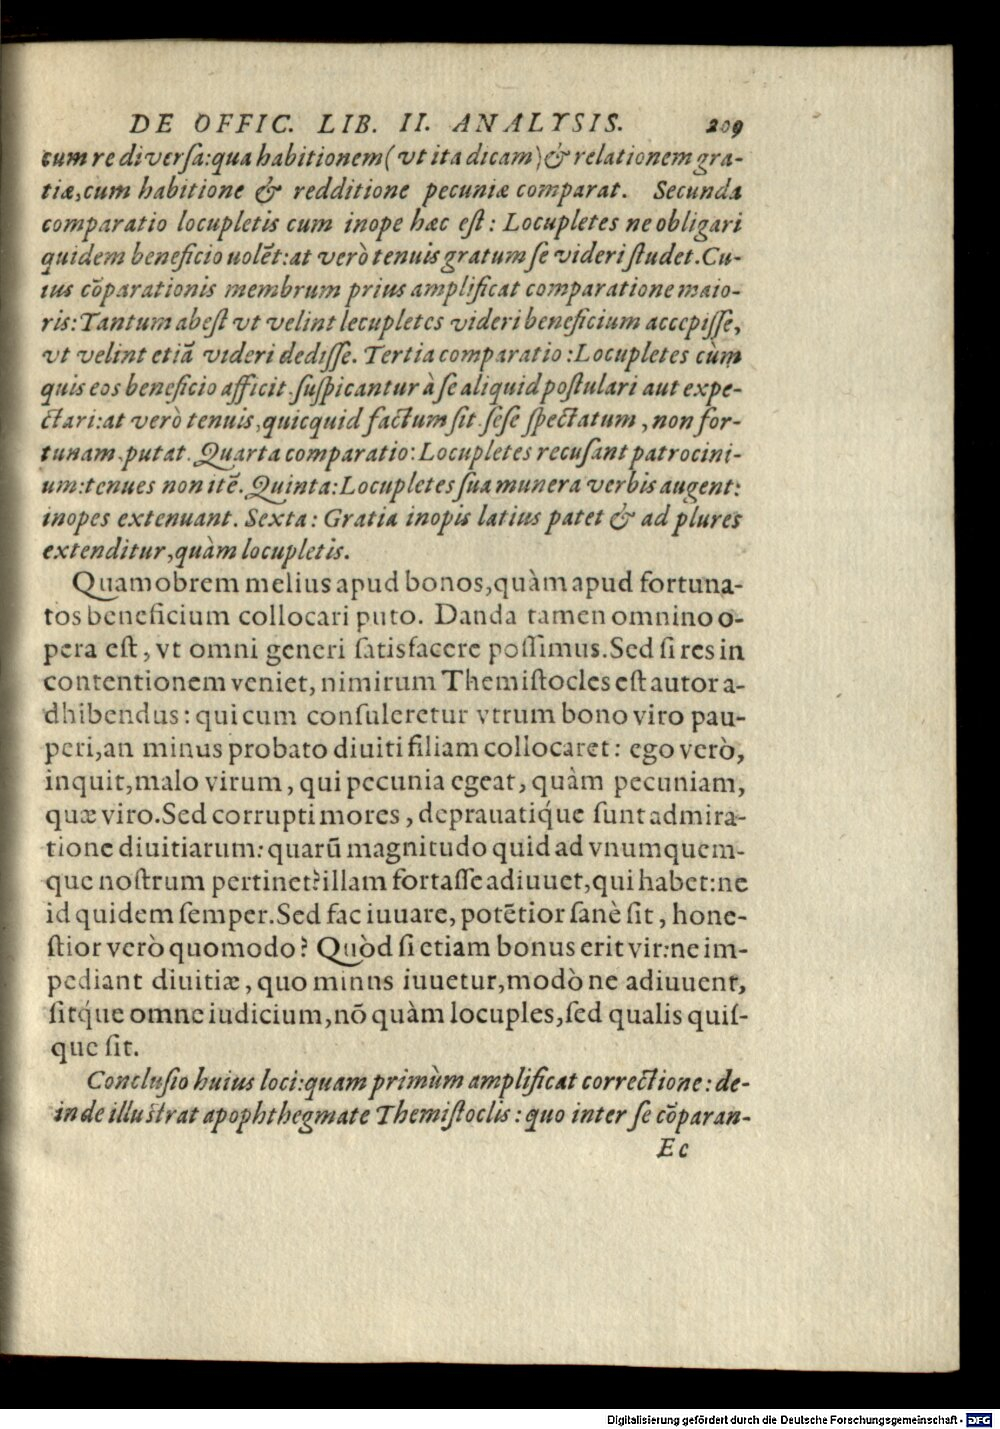 DE OFFIC. LIB. II. ANALYSIS. 209
cum re diversa: qua habitionem (vt ita dicam) & relationem gra-
tiæ, cum habitione & redditione pecuniæ comparat. Secunda
comparatio locupletis cum inope hæc eſt: Locupletes ne obligari
quidem beneficio uolēt: at verò tenuis gratum ſe videri ſtudet. Cu-
ius cōparationis membrum prius amplificat comparatione maio-
ris: Tantum abeſt vt velint lecupletes videri beneficium accepiſſe,
vt velint etiā videri dediſſe. Tertia comparatio: Locupletes cùm
quis eos beneficio afficit, ſuſpicantur à ſe aliquid poſtulari aut expe-
ctari: at verò tenuis, quicquid factum ſit, ſeſe ſpectatum, non for-
tunam, putat. Quarta comparatio: Locupletes recuſant patrocini-
um: tenues non itē. Quinta: Locupletes ſua munera verbis augent:
inopes extenuant. Sexta: Gratia inopis latius patet & ad plures
extenditur, quàm locupletis.
Quamobrem melius apud bonos, quàm apud fortuna-
tos beneficium collocari puto. Danda tamen omnino o-
pera eſt, vt omni generi ſatisfacere poſſimus. Sed ſi res in
contentionem veniet, nimirum Themiſtocles eſt autor a-
dhibendus: qui cum conſuleretur vtrum bono viro pau-
peri, an minus probato diuiti filiam collocaret: ego verò,
inquit, malo virum, qui pecunia egeat, quàm pecuniam,
quæ viro. Sed corrupti mores, deprauatiq́ue ſunt admira-
tione diuitiarum: quarū magnitudo quid ad vnumquem-
que noſtrum pertinet? illam fortaſſe adiuuet, qui habet: ne
id quidem ſemper. Sed fac iuuare, potētior ſanè ſit, hone-
ſtior verò quomodo? Quòd ſi etiam bonus erit vir: ne im-
pediant diuitiæ, quo minus iuuetur, modò ne adiuuent,
ſitq́ue omne iudicium, nō quàm locuples, ſed qualis quiſ-
que ſit.
Concluſio huius loci: quam primùm amplificat correctione: de-
inde illuſtrat apophthegmate Themiſtoclis: quo inter ſe cōparan-
Ee
Digitalisierung gefördert durch die Deutsche Forschungsgemeinschaft - DFG